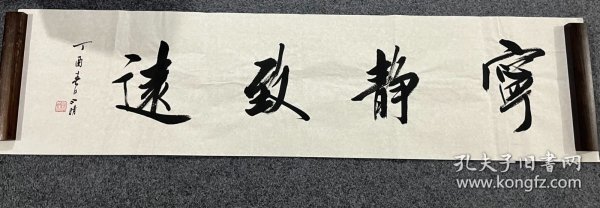 宁静致远
丁酉春日
孔夫子旧书网
www.kongfz.com